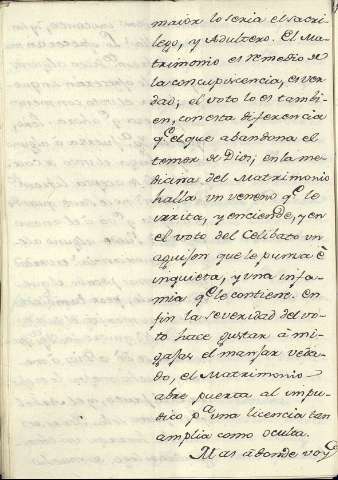 maior lo seria el sacri-
lego, y Adultero. El Ma-
trimonio es remedio de
la concupiscencia, es ver-
dad; el voto lo es tambi-
en, con esta diferencia
q.e el que abandona el
temor de Dios, en la me-
dicina del Matrimonio
halla un veneno q.e le
irrita, y enciende, y en
el voto del Celibato un
aguijon que lo punza è
inquieta, y una infa-
mia q.e lo contiene. en
fin la severidad del vo-
to hace gustar à mi-
gajas el manjar veda-
do, el Matrimonio
abre puerta al impu-
dico p.a una licencia tan
amplia como oculta.
Mas à donde voy